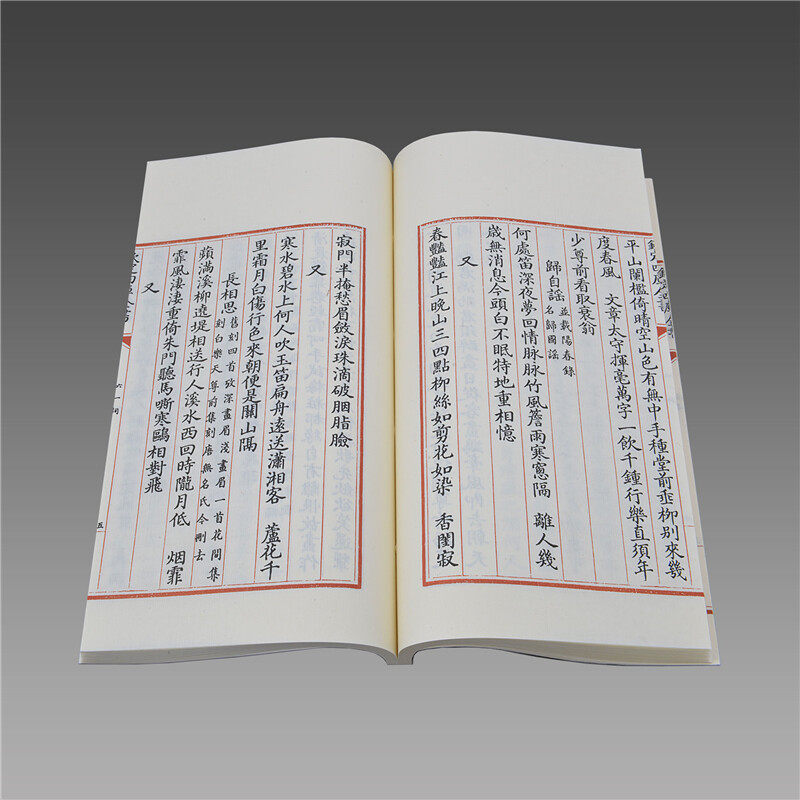 平山闌檻倚晴空山色有無中手種堂前垂柳别來幾
度春風　文章太守揮毫萬字一飲千鍾行樂直須年
少尊前看取衰翁
歸自謡
並載陽春錄
名歸國謡
何處笛深夜夢回情脉脉竹風簷雨寒窻隔　離人幾
歲無消息今頭白不眠特地重相憶
又
春豔豔江上晚山三四點柳絲如剪花如染　香閨寂
寂門半掩愁眉斂淚珠滴破胭脂臉
又
寒水碧水上何人吹玉笛扁舟逺送瀟湘客　蘆花千
里霜月白傷行色來朝便是關山隔
長相思
舊刻四首攷深畫眉淺畫眉一首花間集
刻白樂天尊前集刻唐無名氏今刪去
蘋滿溪柳遶堤相送行人溪水西回時隴月低　烟霏
霏風淒淒重倚朱門聽馬嘶寒鷗相對飛
又
六一詞
五